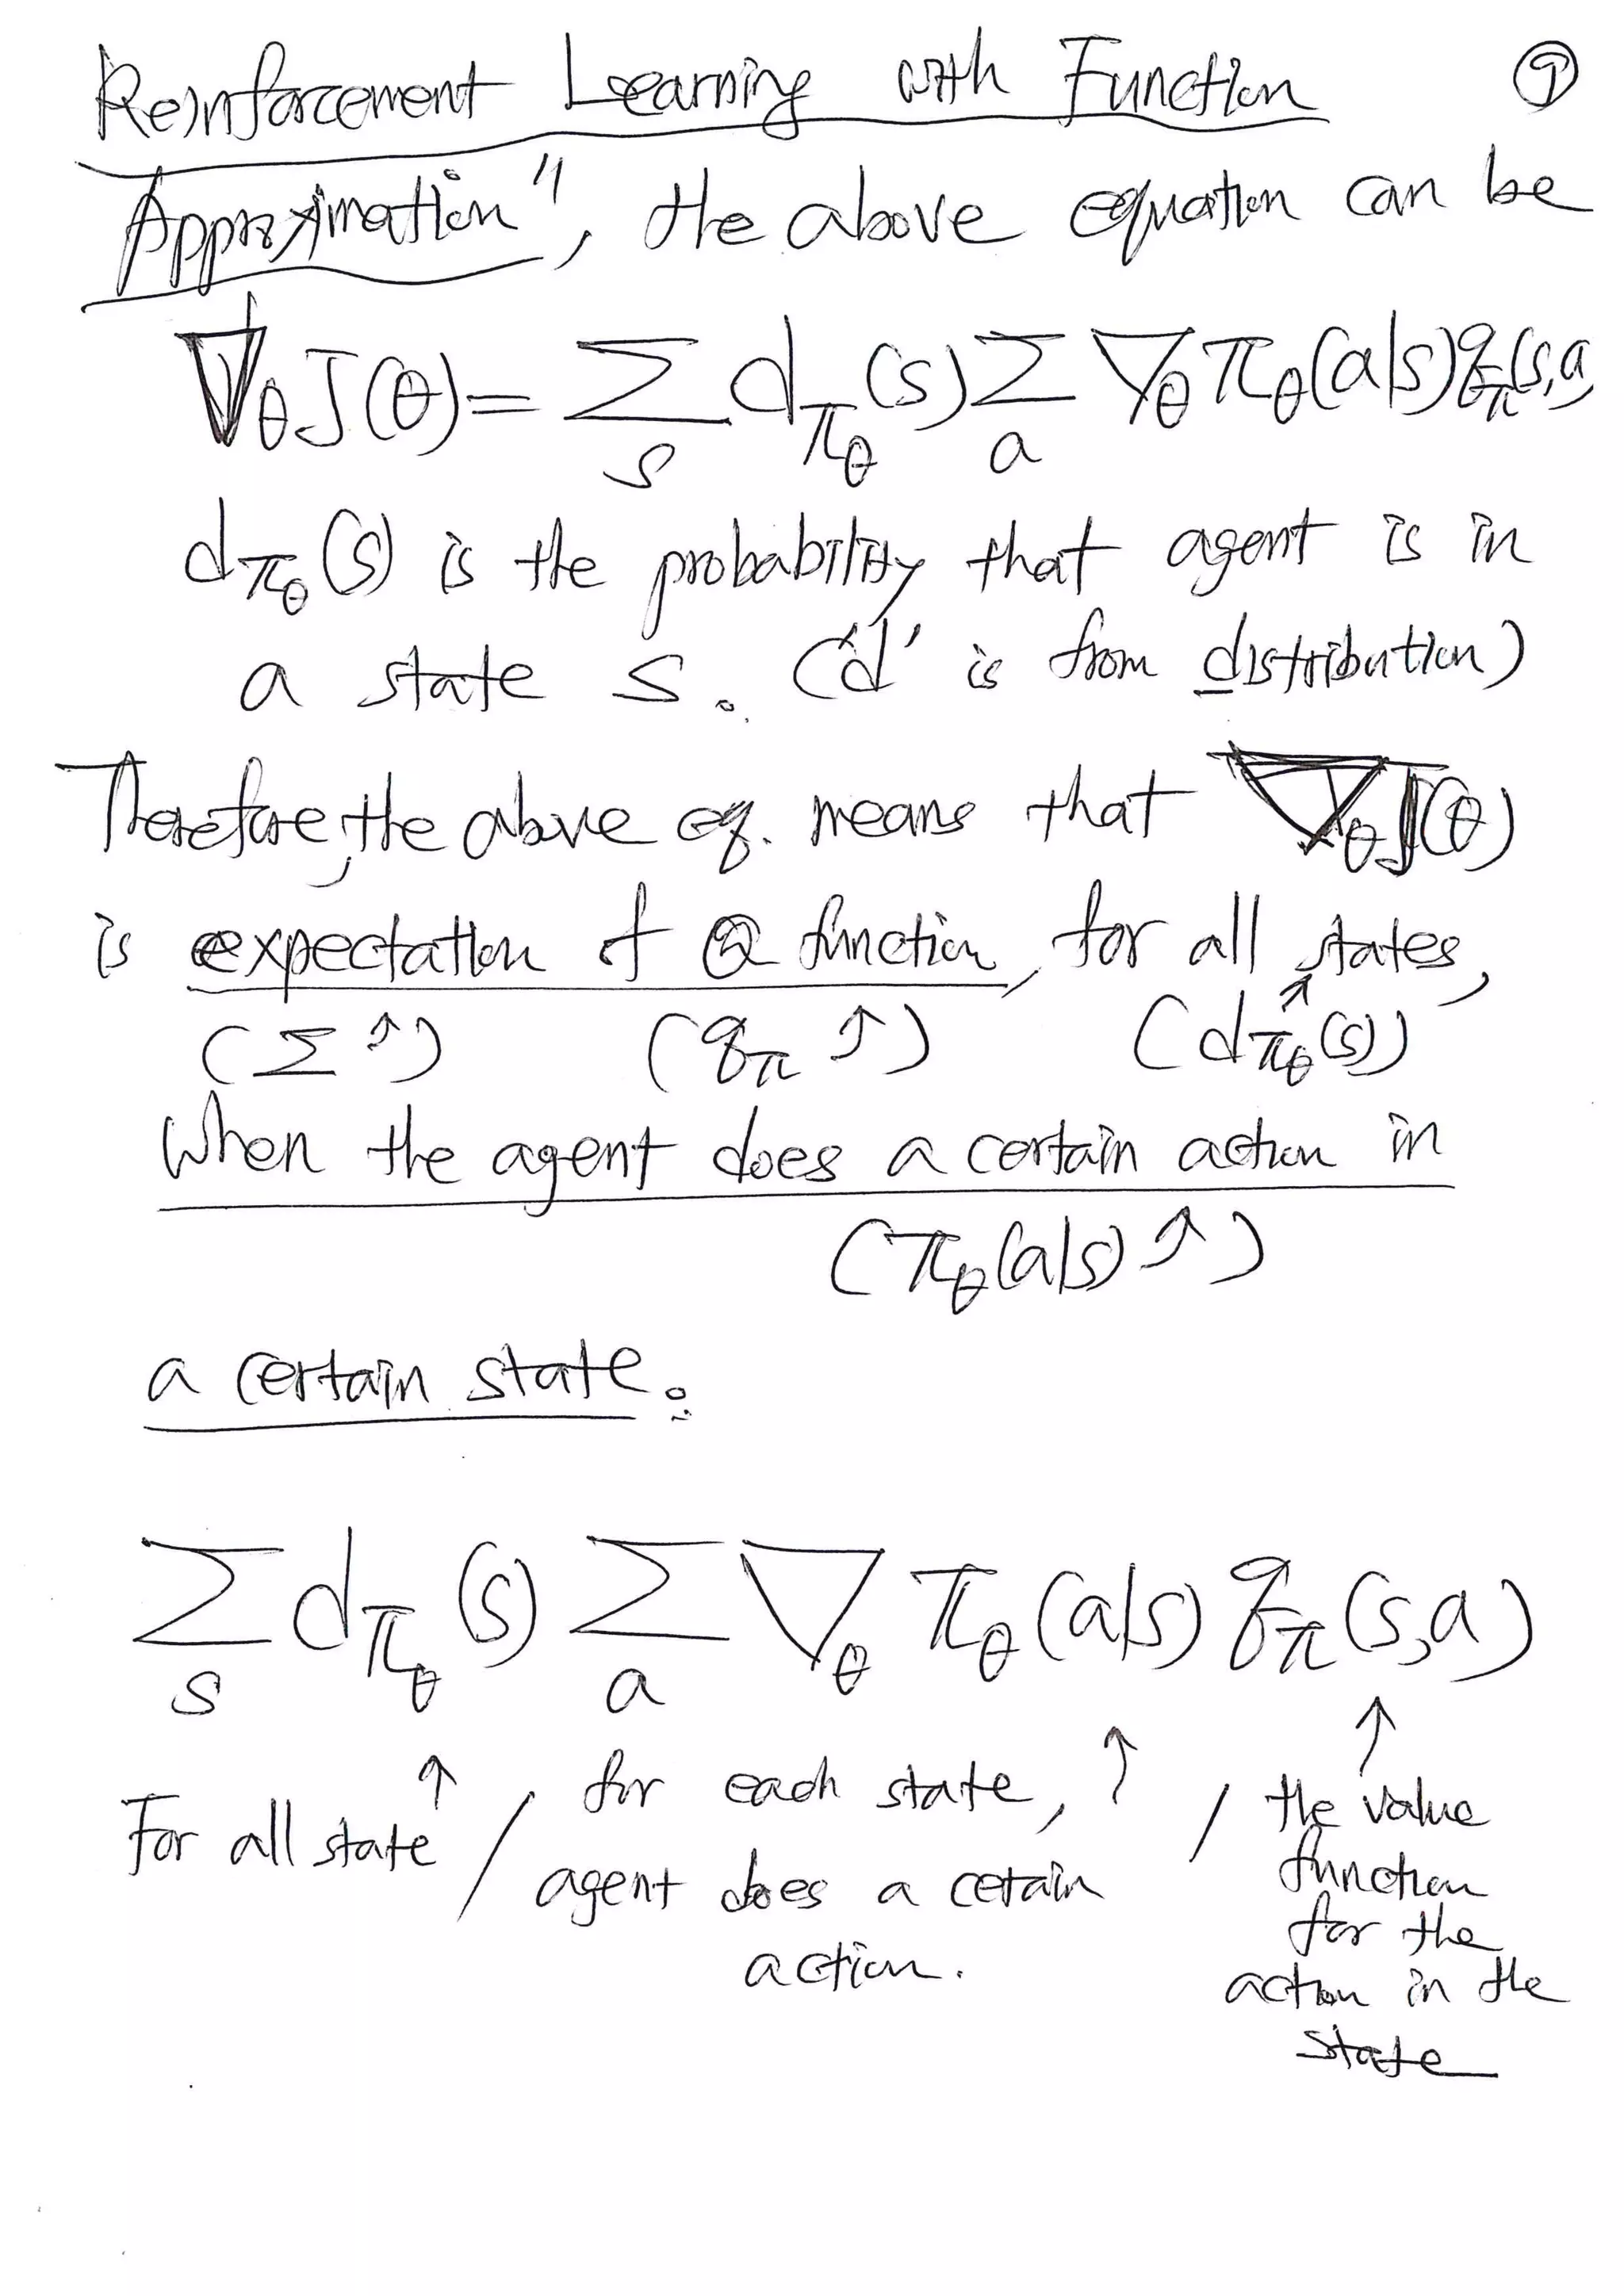 Reinforcement Learning with Function ⑨
Approximation", the above equation can be
∇θJ(θ)=Σs dπθ(s)Σa ∇θπθ(a|s)qπ(s,a)
dπθ(s) is the probability that agent is in
a state s. ('d' is from distribution)
Therefore, the above eq. means that ∇θJ(θ)
is expectation of Q function, for all states,
(Σ↑) (qπ↑) (dπθ(s))
when the agent does a certain action in
(πθ(a|s)↑)
a certain state.
Σs dπθ(s) Σa ∇θ πθ(a|s) qπ(s,a)
↑ ↑ ↑
For all state / for each state, / the value
agent does a cetain function
action. for the
action in the
state